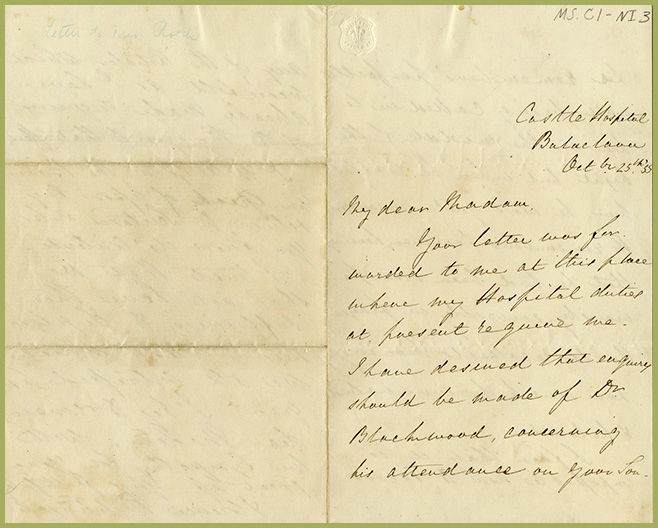 Letter to Mrs. Reed
MS. C1-NI3
Castle Hospital
Balaclava
Octbr 25th 55
My dear Madam.
Your letter was for-
warded to me at this place
where my Hospital duties
at present require me.
I have desired that enquiry
should be made of Dr
Blackwood, concerning
his attendance on your Son-